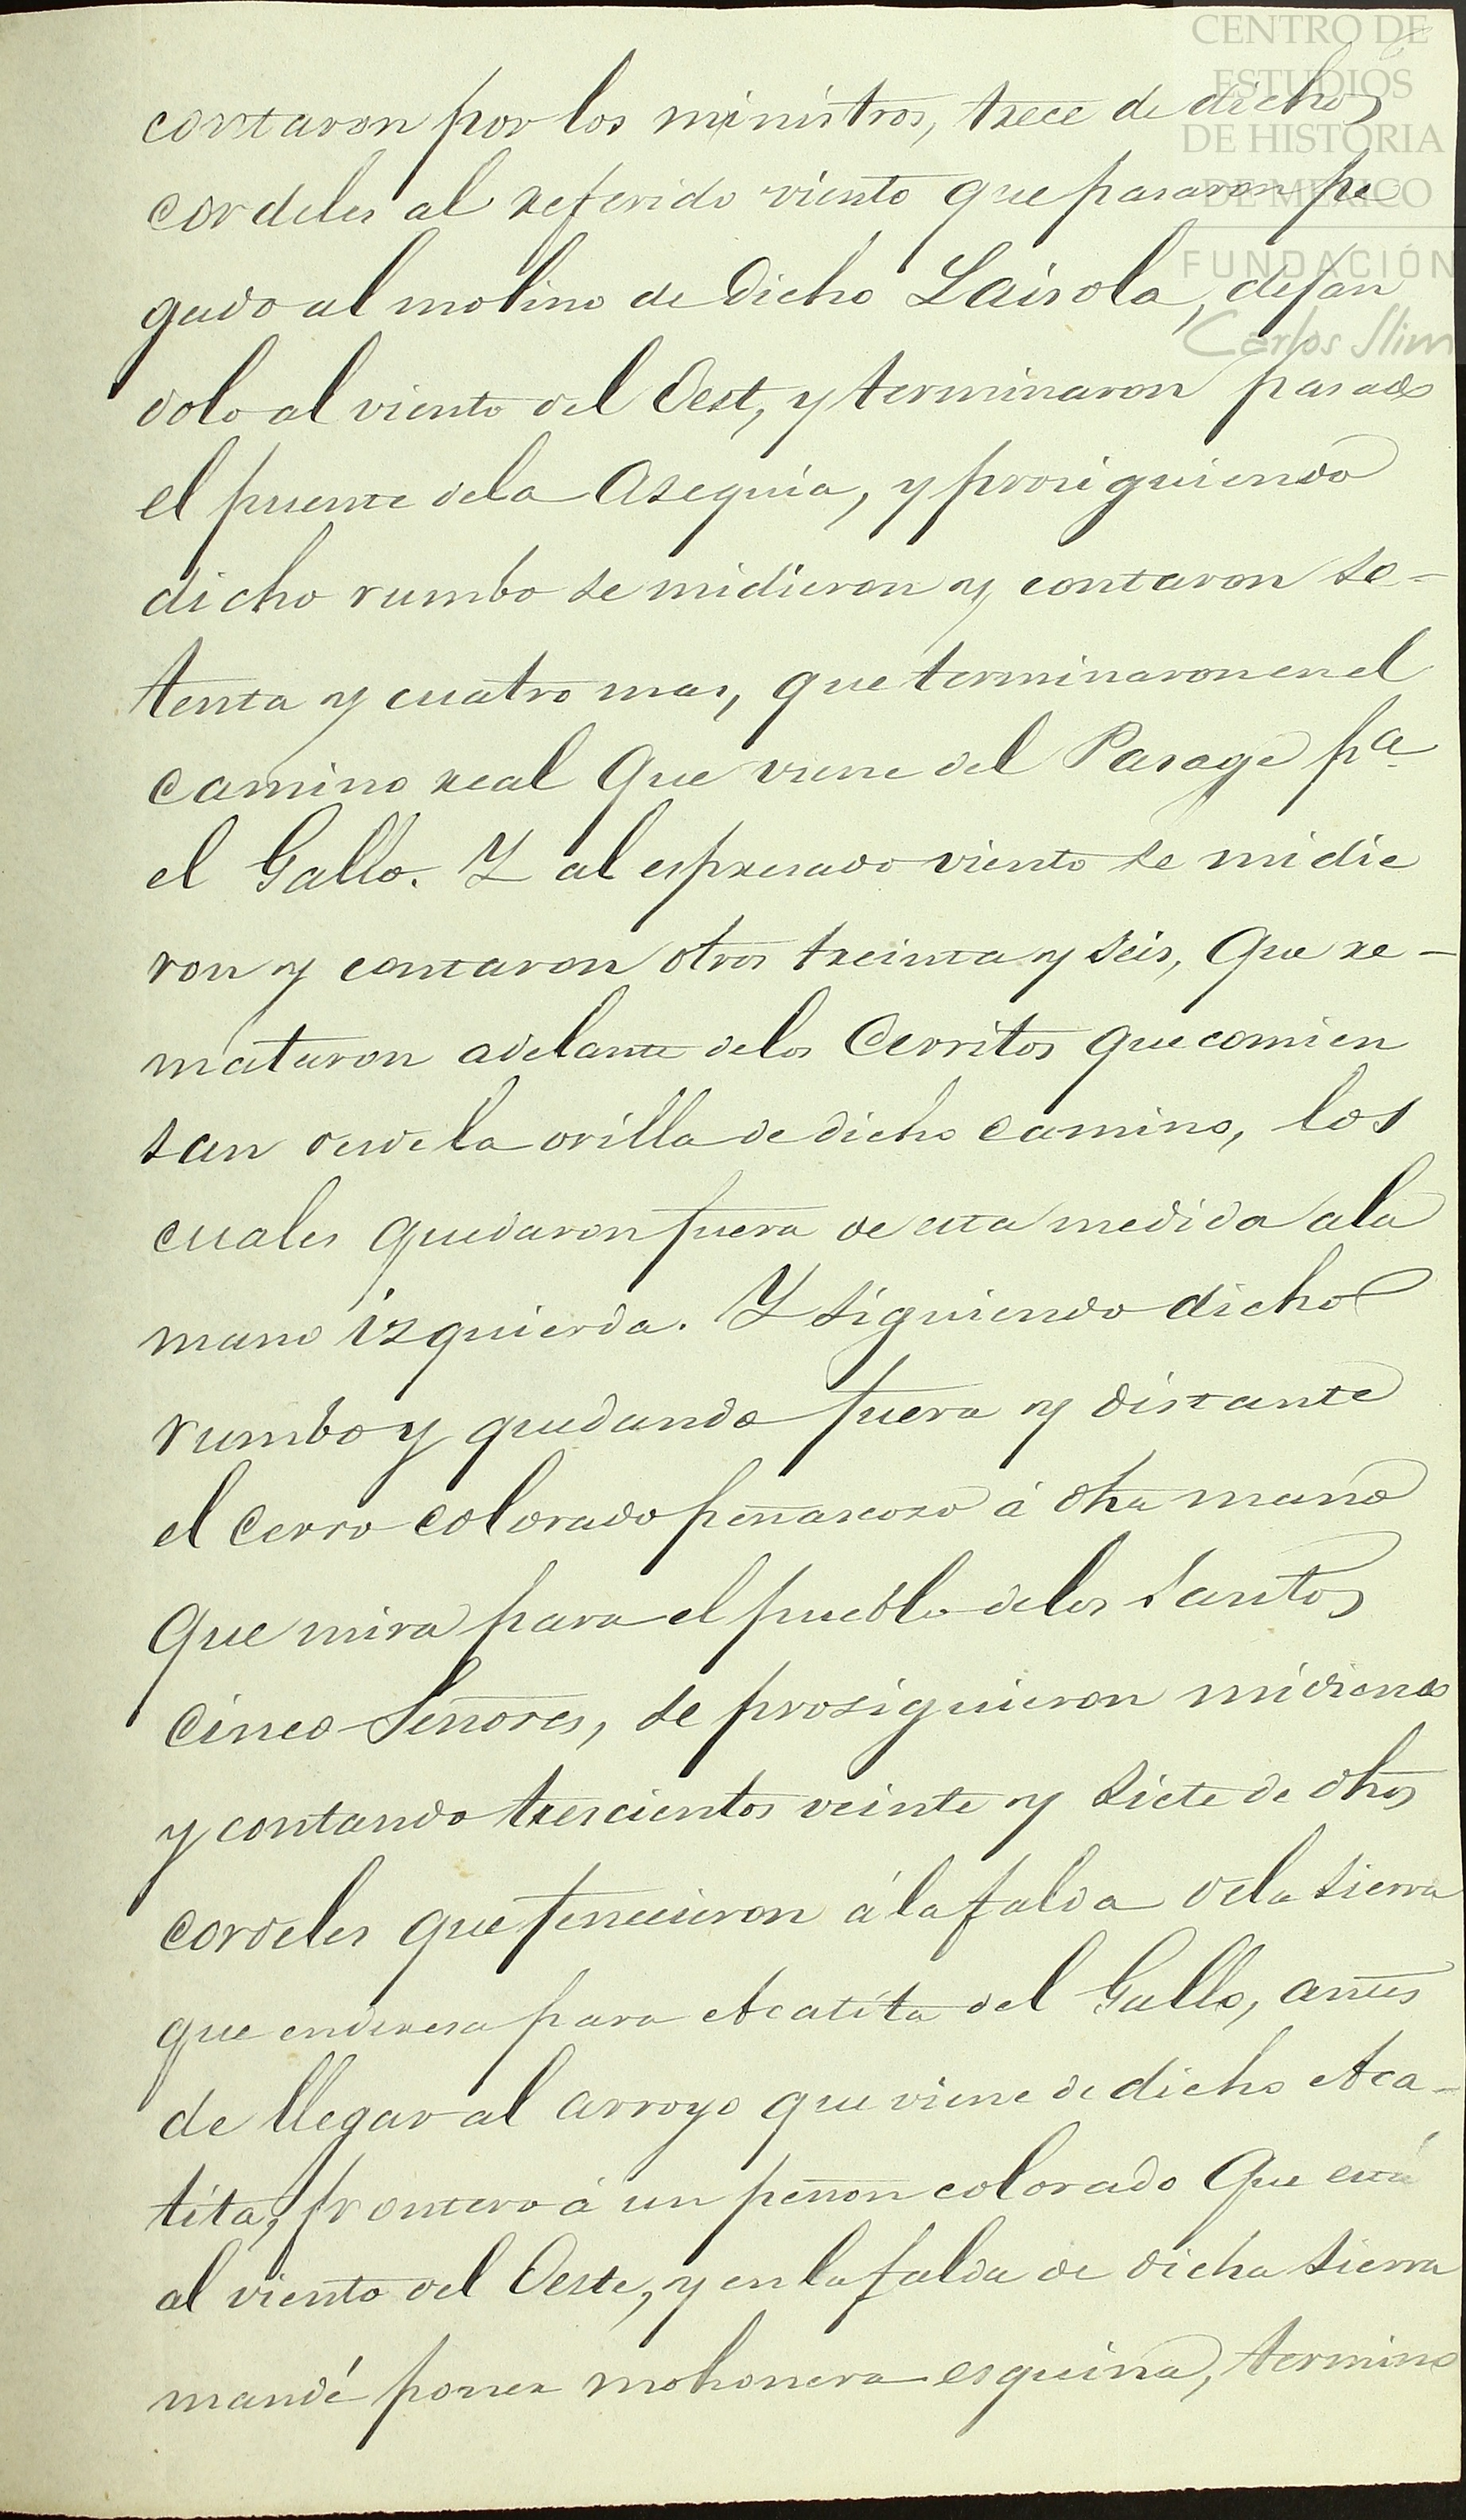 CENTRO DE
ESTUDIOS
DE HISTORIA
DE MEXICO
FUNDACIÓN
Carlos Slim
contaron por los ministros, trece de dichos
cordeles al referido viento que pasaron pe
gado al molino de dicho Laisola, dejan
dolo al viento del Oest, y terminaron pasado
el puente dela Asequia, y prosiguiendo
dicho rumbo se midieron y contaron se-
tenta y cuatro mas, que terminaron en el
camino real que viene del Pasage pa
el Gallo. Y al espresado viento se midie
ron y contaron otros treinta y seis, que re-
mataron adelante delos Cerritos que comien
san desde la orilla de dicho camino, los
cuales quedaron fuera de esta medida ala
mano izquierda. Y siguiendo dicho
rumbo y quedando fuera y distante
el Cerro colorado peñascoso á dha mano
que mira para el pueblo delos Santos
Cinco Señores, se prosiguieron midiendo
y contando trescientos veinte y siete de dhos
cordeles que fenecieron á la falda dela sierra
que enderesa para Acatita del Gallo, antes
de llegar al arroyo que viene de dicho Aca-
tita, frontero á un peñon colorado que está
al viento del Oeste, y en la falda de dicha sierra
mandé poner mohonera esquina, termino